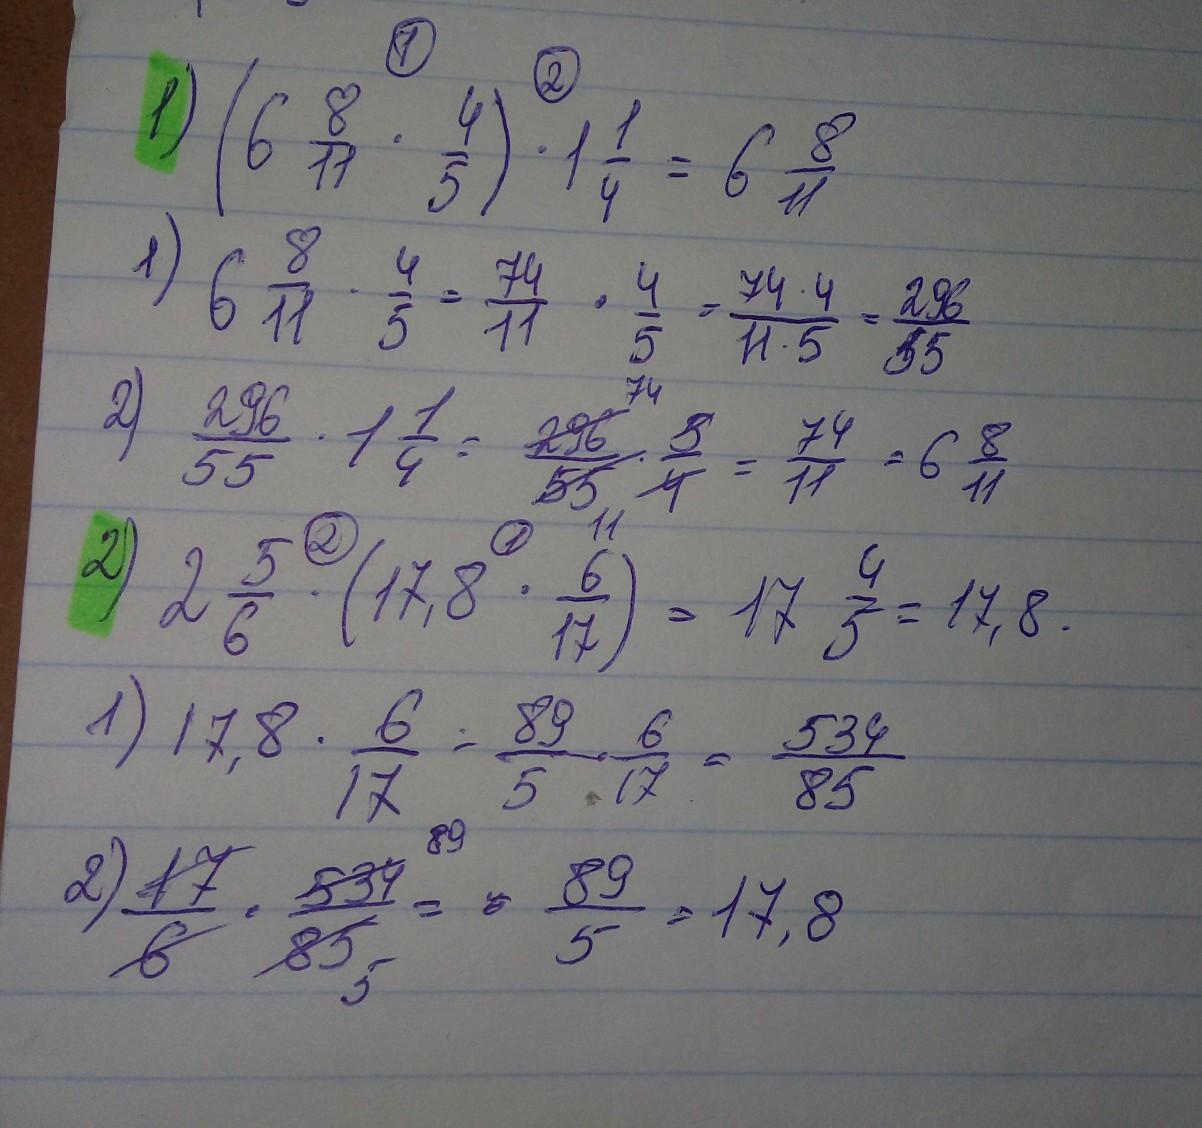 1) (6 8/11 · 4/5) · 1 1/4 = 6 8/11
1) 6 8/11 · 4/5 = 74/11 · 4/5 = 74·4/11·5 = 296/55
2) 296/55 · 1 1/4 = 296/55 · 5/4 = 74/11 = 6 8/11
2) 2 5/6 · (17,8 · 6/17) = 17 4/5 = 17,8.
1) 17,8 · 6/17 = 89/5 · 6/17 = 534/85
2) 17/6 · 534/85 = = 89/5 = 17,8